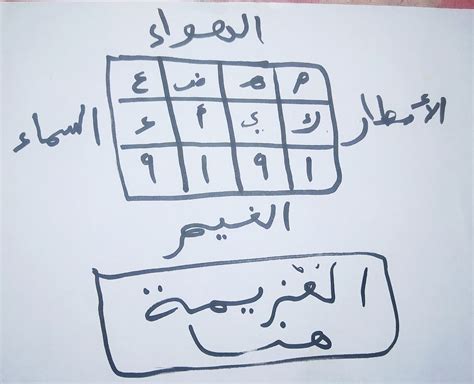 الهواء
م ه ض ع
السماء
ك ي أ ء
الأمطار
١ ٩ ١ ٩
الغيم
العزيمة
هنا